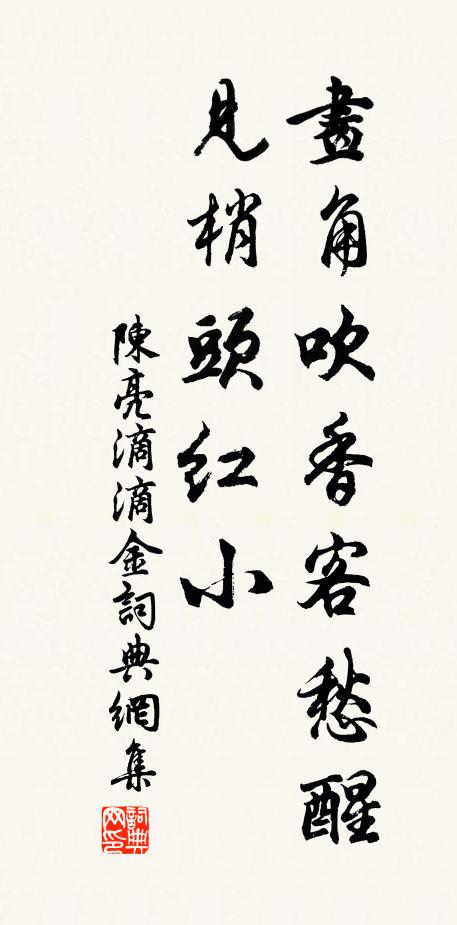 畫角吹香客愁醒
見梢頭紅小
陳亮滴滴金詞典網集
詞典網印